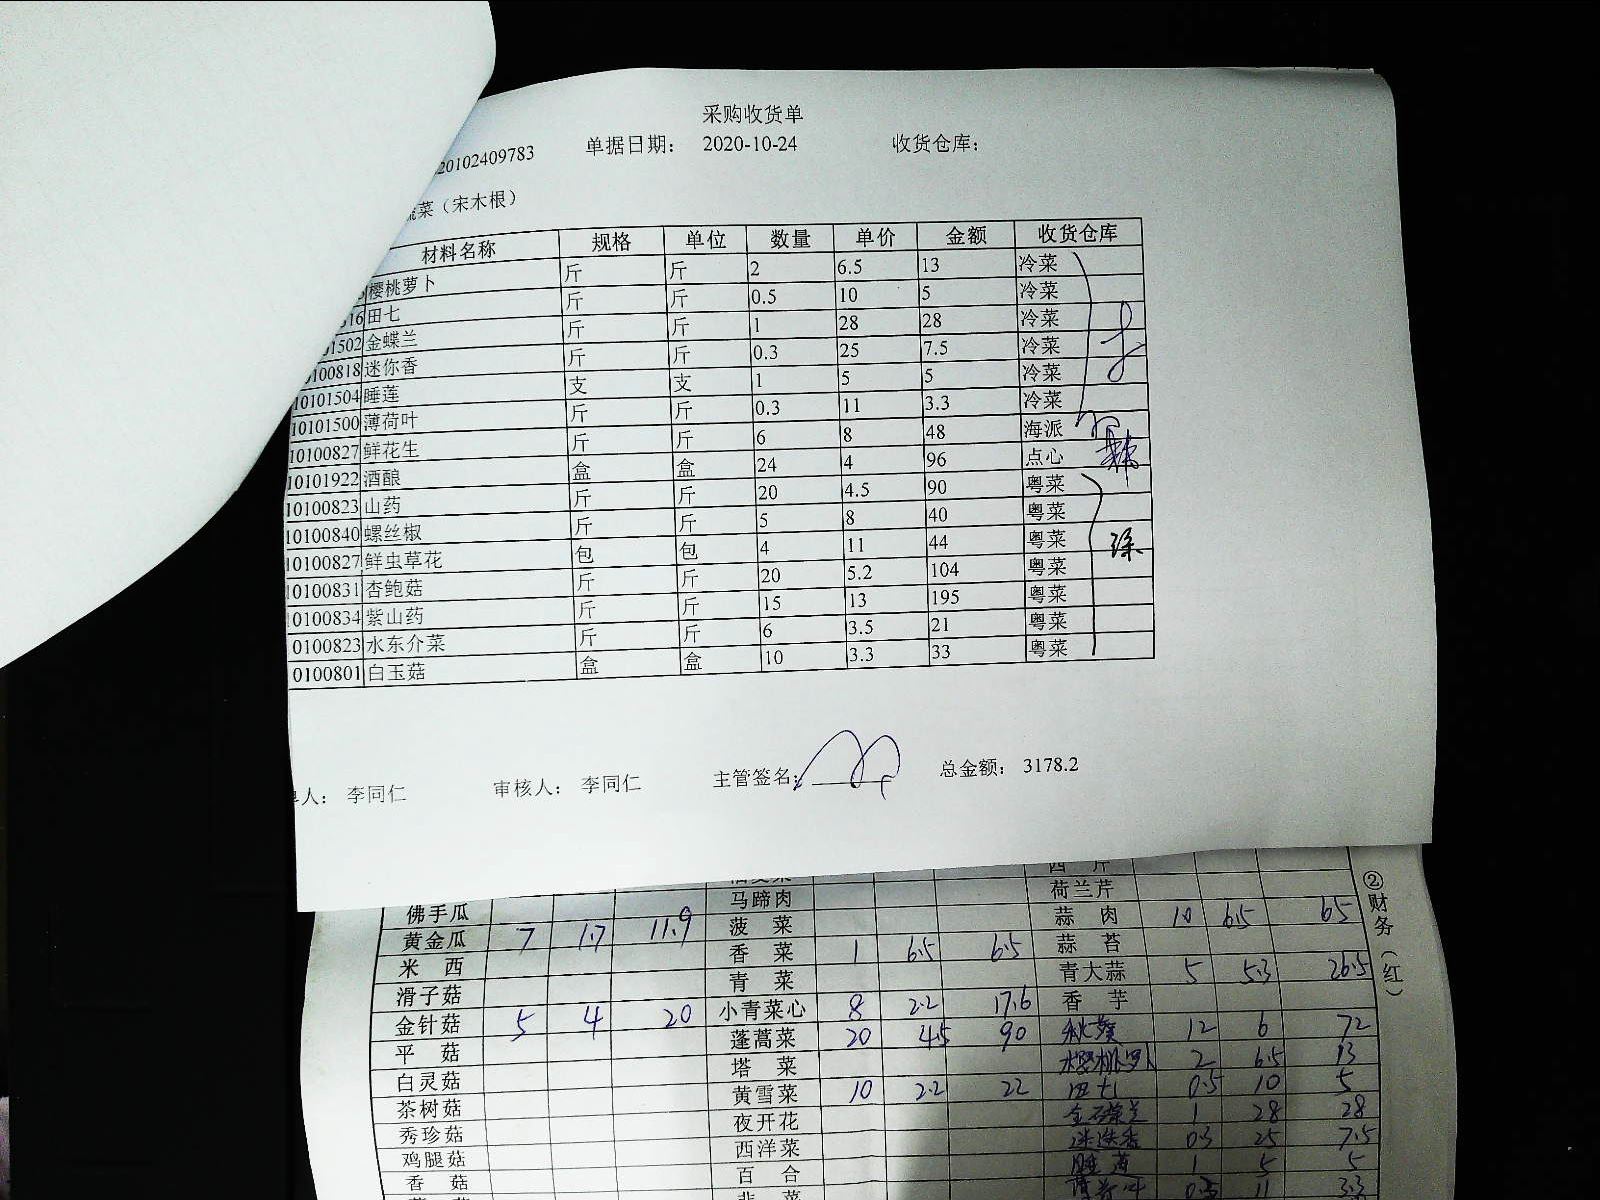 采购收货单
20102409783 单据日期: 2020-10-24 收货仓库:
菜(宋木根)
材料名称 规格 单位 数量 单价 金额 收货仓库
樱桃萝卜 斤 斤 2 6.5 13 冷菜
316 田七 斤 斤 0.5 10 5 冷菜
01502 金蝶兰 斤 斤 1 28 28 冷菜
0100818 迷你香 斤 斤 0.3 25 7.5 冷菜
10101504 睡莲 支 支 1 5 5 冷菜
10101500 薄荷叶 斤 斤 0.3 11 3.3 冷菜
10100827 鲜花生 斤 斤 6 8 48 海派
10101922 酒酿 盒 盒 24 4 96 点心
10100823 山药 斤 斤 20 4.5 90 粤菜
10100840 螺丝椒 斤 斤 5 8 40 粤菜
10100827 鲜虫草花 包 包 4 11 44 粤菜
10100831 杏鲍菇 斤 斤 20 5.2 104 粤菜
10100834 紫山药 斤 斤 15 13 195 粤菜
0100823 水东介菜 斤 斤 6 3.5 21 粤菜
0100801 白玉菇 盒 盒 10 3.3 33 粤菜
人: 李同仁 审核人: 李同仁 主管签名: 总金额: 3178.2
②财务(红)
西 芹
佛手瓜 马蹄肉 荷兰芹
黄金瓜 7 1.7 11.9 菠 菜 蒜 肉 10 6.5 65
米 西 香 菜 1 6.5 6.5 蒜 苔
滑子菇 青 菜 青大蒜 5 5.3 26.5
金针菇 5 4 20 小青菜心 8 2.2 17.6 香 芋
平 菇 蓬蒿菜 20 4.5 90 秋葵 12 6 72
白灵菇 塔 菜 樱桃萝卜 2 6.5 13
茶树菇 黄雪菜 10 2.2 22 田七 0.5 10 5
秀珍菇 夜开花 金碟兰 1 28 28
鸡腿菇 西洋菜 迷迭香 0.3 25 7.5
香 菇 百 合 睡莲 1 5 5
韭 菜 薄荷叶 0.3 11 3.3